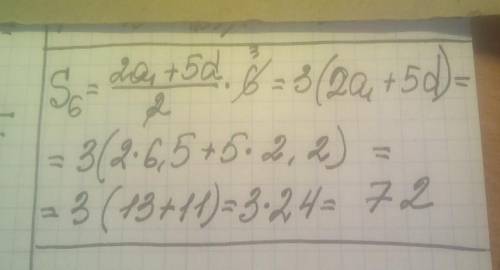 S₆ = (2a₁ + 5d)/2 · 6 3 = 3(2a₁ + 5d) =
= 3(2·6,5 + 5·2,2) =
= 3(13 + 11) = 3·24 = 72